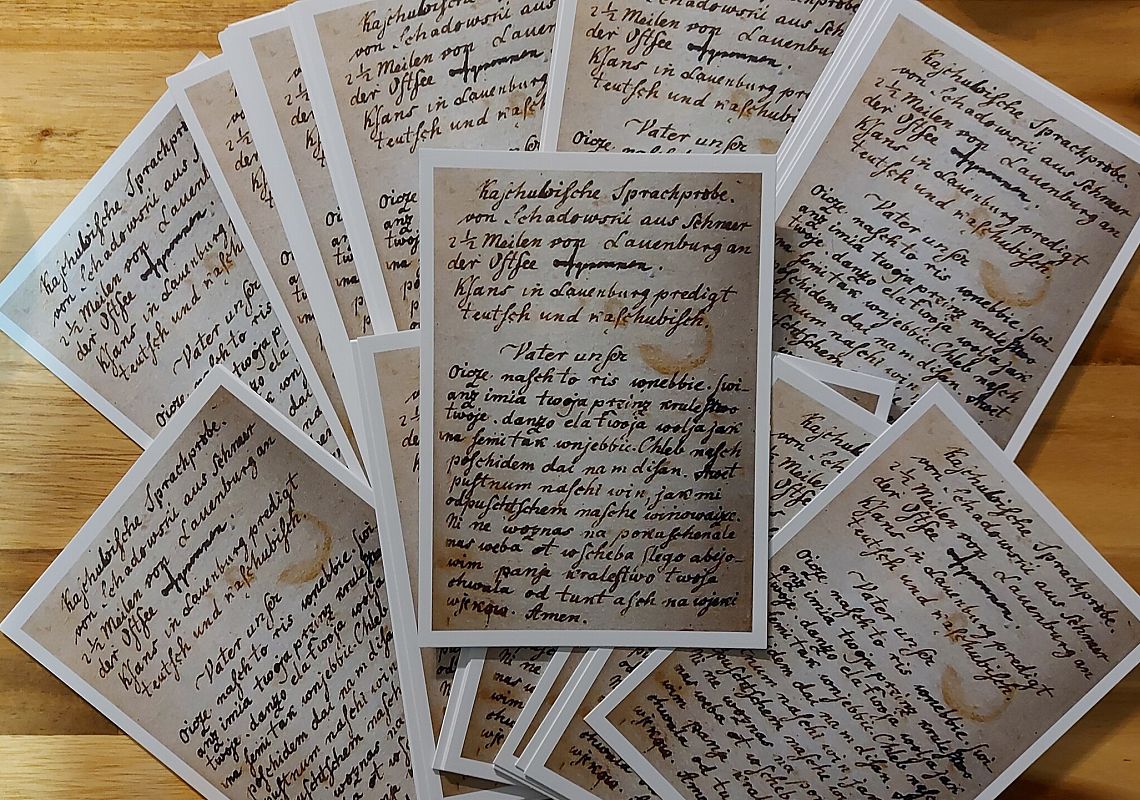 Kaschubische Sprachprobe.
von Schadowski aus Schmer
2½ Meilen von Lauenburg an
der Ostsee
Ksans in Lauenburg predigt
teutsch und kaschubisch
Vater unser
Oicze. nasch to ris wnebbie. swi-
anz imia twoja przinz krulestwo
twoje. danzo ela twoja wolja jak
na semi tak wnjebbie. Chleb nasch
poschidem dai nam disan.
pustnum naschi win, jak mi
odpuschtschem nasche winowaice.
Ni ne woznas na pokuschenale
nas weba ot wscheba slego abijo-
wim panje kralestwo twoja
chwala od tunt asch na wjeni
wjenqua. Amen.